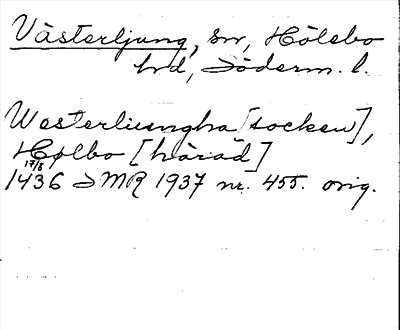 Västerljung, sn, Hölebo
hd, Söderm. l.
Westerliungha [socken],
Hølbo [härad]
17/8
1436 SMR 1937 nr. 455. orig.